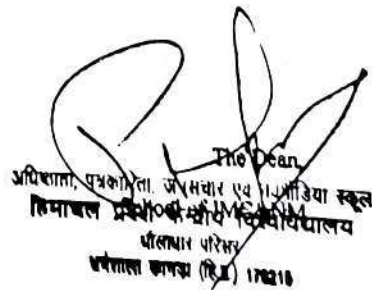 The Dean,
अधिष्ठाता, पत्रकारिता, जनसंचार एवं मीडिया स्कूल
हिमाचल प्रदेश केन्द्रीय विश्वविद्यालय
धौलाधार परिसर
धर्मशाला कांगड़ा (हि.प्र.) 176215